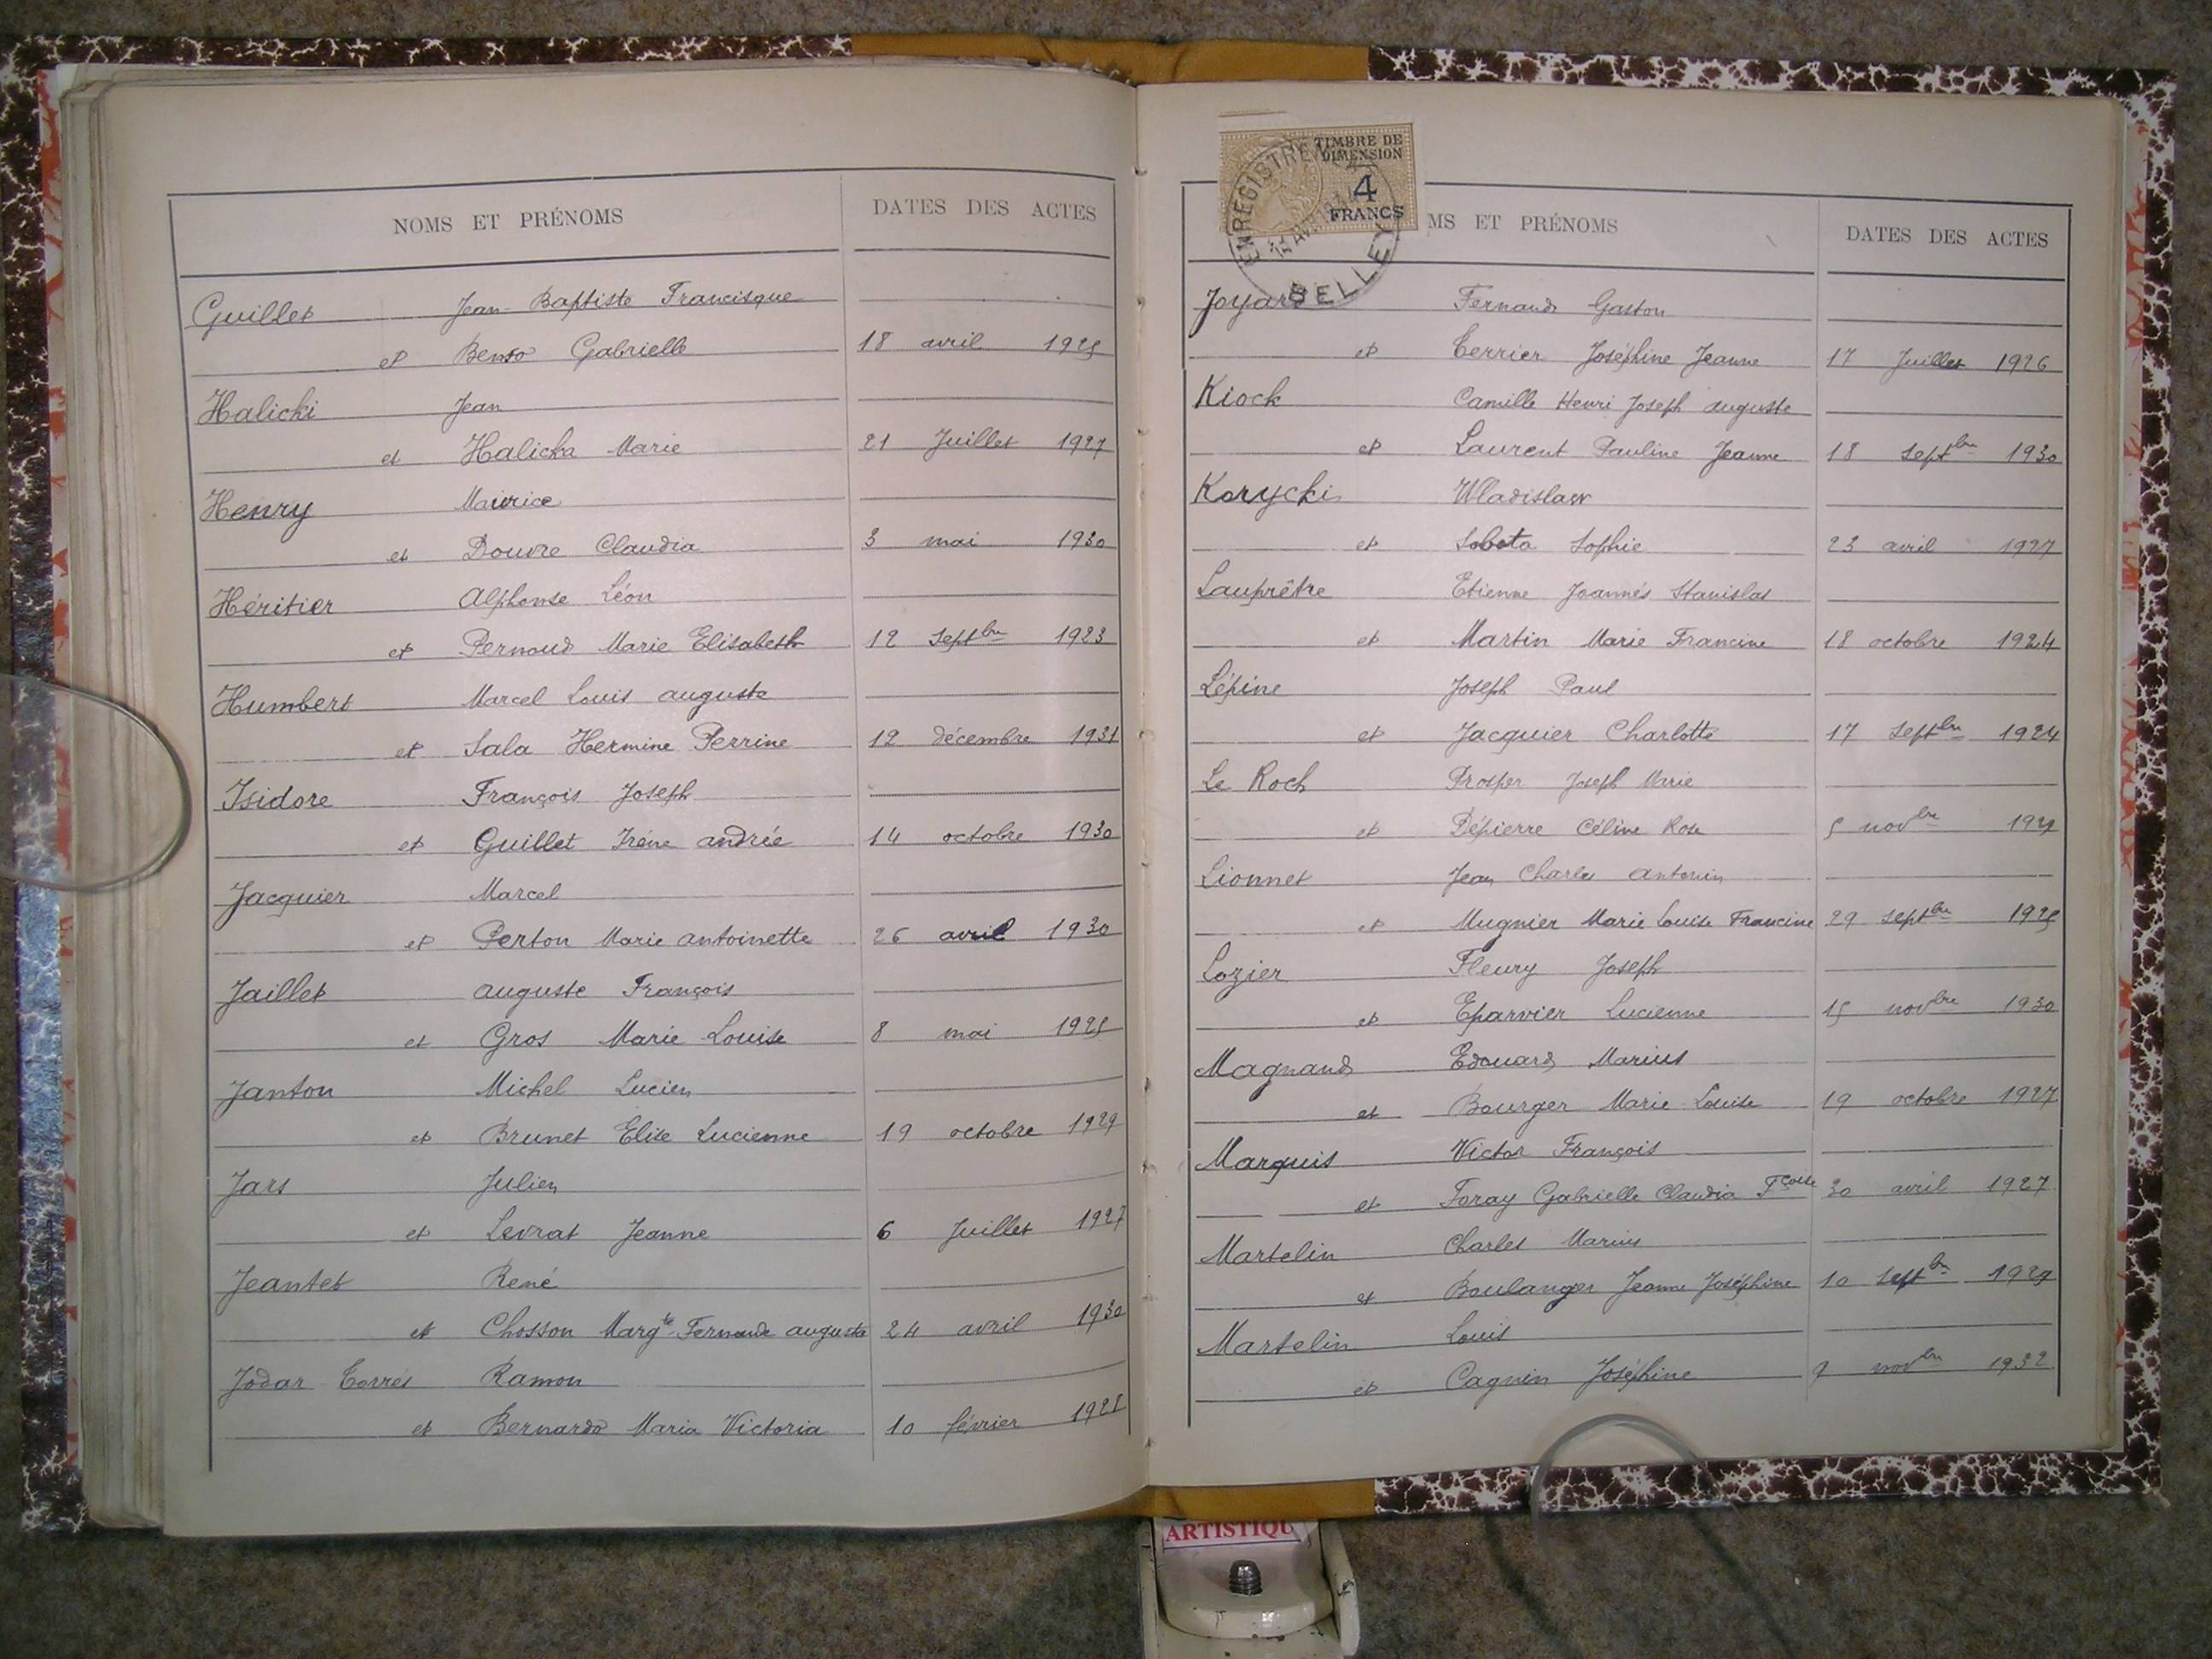 NOMS ET PRÉNOMS DATES DES ACTES
Guillet Jean-Baptiste Francisque
et Benso Gabrielle 18 avril 1925
Halicki Jean
et Halicka Marie 21 Juillet 1927
Henry Maurice
et Douvre Claudia 3 mai 1930
Héritier Alphonse Léon
et Pernoud Marie Elisabeth 12 Septbre 1923
Humbert Marcel Louis auguste
et Sala Hermine Perrine 12 décembre 1931
Isidore François Joseph
et Guillet Irène andrée 14 octobre 1930
Jacquier Marcel
et Perton Marie antoinette 26 avril 1930
Jaillet auguste François
et Gros Marie Louise 8 mai 1925
Janton Michel Lucien
et Brunet Elise Lucienne 19 octobre 1929
Jars Julien
et Levrat Jeanne 6 Juillet 1927
Jeantet René
et Chosson Margte Fernande augusta 24 avril 1930
Jodar Torrès Ramon
et Bernardo Maria Victoria 10 février
TIMBRE DE DIMENSION
4 FRANCS
ENREGISTREMENT
BELLEY
MS ET PRÉNOMS DATES DES ACTES
Joyard Fernand Gaston
et Terrier Joséphine Jeanne 17 Juillet 1926
Kiock Camille Henri Joseph auguste
et Laurent Pauline Jeanne 18 septbre 1930
Korycki Wladislaw
et Sobota Sophie 23 avril 1927
Lauprêtre Etienne Joannès Stanislas
et Martin Marie Francine 18 octobre 1924
Lépine Joseph Paul
et Jacquier Charlotte 17 septbre 1924
Le Roch Prosper Joseph Marie
et Dépierre Céline Rose 5 novbre
Lionnet Jean Charles antonin
et Mugnier Marie Louise Francine 29 septbre 1925
Lozier Fleury Joseph
et Eparvier Lucienne 15 novbre 1930
Magnand Edouard Marius
et Bourger Marie Louise 19 octobre 1927
Marquis Victor François
et Foray Gabrielle Claudia Fçoise 30 avril 1927
Martelin Charles Marius
et Boulanger Jeanne Joséphine 10 septbre 1929
Martelin Louis
et Cagnin Joséphine novbre 1932
ARTISTIQU